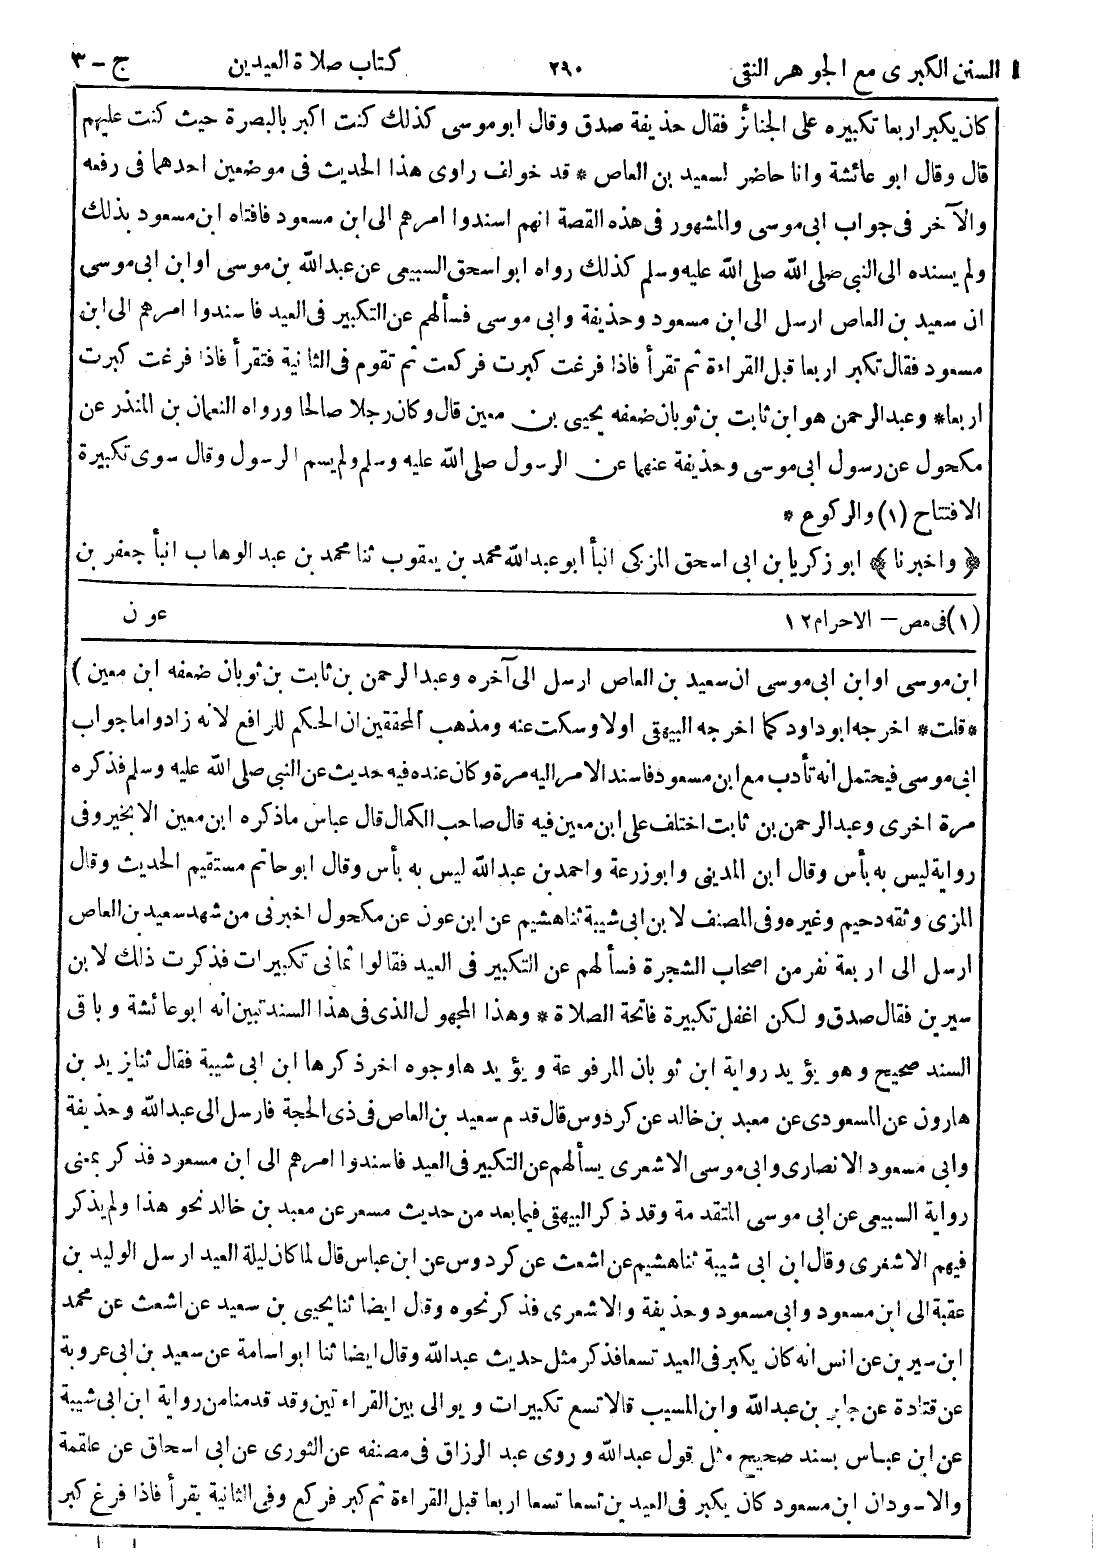 السنن الكبرى مع الجوهر النقى ٢٩٠ كتاب صلاة العيدين ج - ٣
كان يكبر اربعا تكبيره على الجنائز فقال حذيفة صدق وقال ابو موسى كذلك كنت اكبر بالبصرة حيث كنت عليهم
قال وقال ابو عائشة وانا حاضر لسعيد بن العاص * قد خولف راوى هذا الحديث فى موضعين احدهما فى رفعه
والآخر فى جواب ابى موسى والمشهور فى هذه القصة انهم اسندوا امرهم الى ابن مسعود فافتاه ابن مسعود بذلك
ولم يسنده الى النبى صلى الله صلى الله عليه وسلم كذلك رواه ابو اسحق السبيعى عن عبد الله بن موسى او ابن ابى موسى
ان سعيد بن العاص ارسل الى ابن مسعود وحذيفة وابى موسى فسألهم عن التكبير فى العيد فاسندوا امرهم الى ابن
مسعود فقال تكبر اربعا قبل القراءة ثم تقرأ فاذا فرغت كبرت فركعت ثم تقوم فى الثانية فتقرأ فاذا فرغت كبرت
اربعا * وعبد الرحمن هو ابن ثابت بن ثوبان ضعفه يحيى بن معين قال وكان رجلا صالحا ورواه النعمان بن المنذر عن
مكحول عن رسول ابى موسى وحذيفة عنهما عن الرسول صلى الله عليه وسلم ولم يسم الرسول وقال سوى تكبيرة
الافتتاح (١) والركوع *
﴿ واخبرنا ﴾ ابو زكريا بن ابى اسحق المزكى انبأ ابو عبد الله محمد بن يعقوب ثنا محمد بن عبد الوهاب انبأ جعفر بن
(١) فى مص - الاحرام ١٢ عون
ابن موسى او ابن ابى موسى ان سعيد بن العاص ارسل الى آخره وعبد الرحمن بن ثابت بن ثوبان ضعفه ابن معين )
* قلت * اخرجه ابو داود كما اخرجه البيهقى اولا وسكت عنه ومذهب المحققين ان الحكم للرافع لانه زاد واما جواب
ابى موسى فيحتمل انه تأدب مع ابن مسعود فاسند الامر اليه مرة وكان عنده فيه حديث عن النبى صلى الله عليه وسلم فذكره
مرة اخرى وعبد الرحمن بن ثابت اختلف على ابن معين فيه قال صاحب الكمال قال عباس ما ذكره ابن معين الا بخير وفى
رواية ليس به بأس وقال ابن المدينى وابو زرعة واحمد بن عبد الله ليس به بأس وقال ابو حاتم مستقيم الحديث وقال
المزى وثقه دحيم وغيره وفى المصنف لابن ابى شيبة ثنا هشيم عن ابن عون عن مكحول اخبرنى من شهد سعيد بن العاص
ارسل الى اربعة نفر من اصحاب الشجرة فسألهم عن التكبير فى العيد فقالوا ثمانى تكبيرات فذكرت ذلك لابن
سيرين فقال صدق ولكن اغفل تكبيرة فاتحة الصلاة * وهذا المجهول الذى فى هذا السند تبين انه ابو عائشة وباقى
السند صحيح وهو يؤيد رواية ابن ثوبان المرفوعة ويؤيدها وجوه اخر ذكرها ابن ابى شيبة فقال ثنا يزيد بن
هارون عن المسعودى عن معبد بن خالد عن كردوس قال قدم سعيد بن العاص فى ذى الحجة فارسل الى عبد الله وحذيفة
وابى مسعود الانصارى وابى موسى الاشعرى يسألهم عن التكبير فى العيد فاسندوا امرهم الى ابن مسعود فذكر بمعنى
رواية السبيعى عن ابى موسى المتقدمة وقد ذكر البيهقى فيما بعد من حديث مسعر عن معبد بن خالد نحو هذا ولم يذكر
فيهم الاشعرى وقال ابن ابى شيبة ثنا هشيم عن اشعث عن كردوس عن ابن عباس قال لما كان ليلة العيد ارسل الوليد بن
عقبة الى ابن مسعود وابى مسعود وحذيفة والاشعرى فذكر نحوه وقال ايضا ثنا يحيى بن سعيد عن اشعث عن محمد
ابن سيرين عن انس انه كان يكبر فى العيد تسعا فذكر مثل حديث عبد الله وقال ايضا ثنا ابو اسامة عن سعيد بن ابى عروبة
عن قتادة عن جابر بن عبد الله وابن المسيب قالا تسع تكبيرات ويوالى بين القراءتين وقد قدمنا من رواية ابن ابى شيبة
عن ابن عباس بسند صحيح مثل قول عبد الله وروى عبد الرزاق فى مصنفه عن الثورى عن ابى اسحاق عن علقمة
والاسود ان ابن مسعود كان يكبر فى العيدين تسعا تسعا اربعا قبل القراءة ثم كبر فركع وفى الثانية يقرأ فاذا فرغ كبر